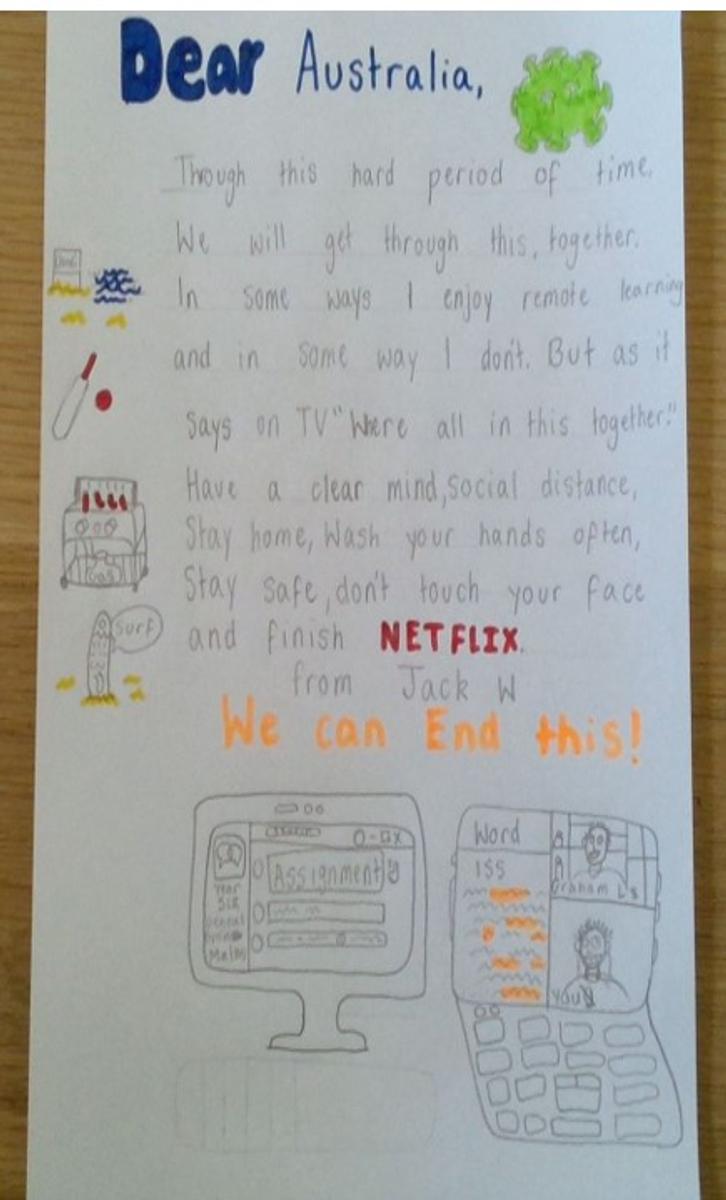 Dear Australia,
Through this hard period of time.
We will get through this, together.
In some ways I enjoy remote learning
and in some way I don't. But as it
says on TV "Where all in this together."
Have a clear mind, social distance,
Stay home, Wash your hands often,
Stay safe, don't touch your face
and finish NETFLIX.
surf
from Jack W
We can End this!
Assignment
Year
Maths
Word
ISS
Graham
you